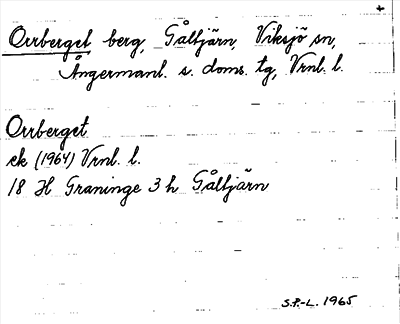 +
Orrberget berg, Gåltjärn, Viksjö sn,
Ångermanl. s. doms. tg, Vrnl. l.
Orrberget
ek (1964) Vrnl. l.
18 H Graninge 3 h Gåltjärn
S.P.-L. 1965